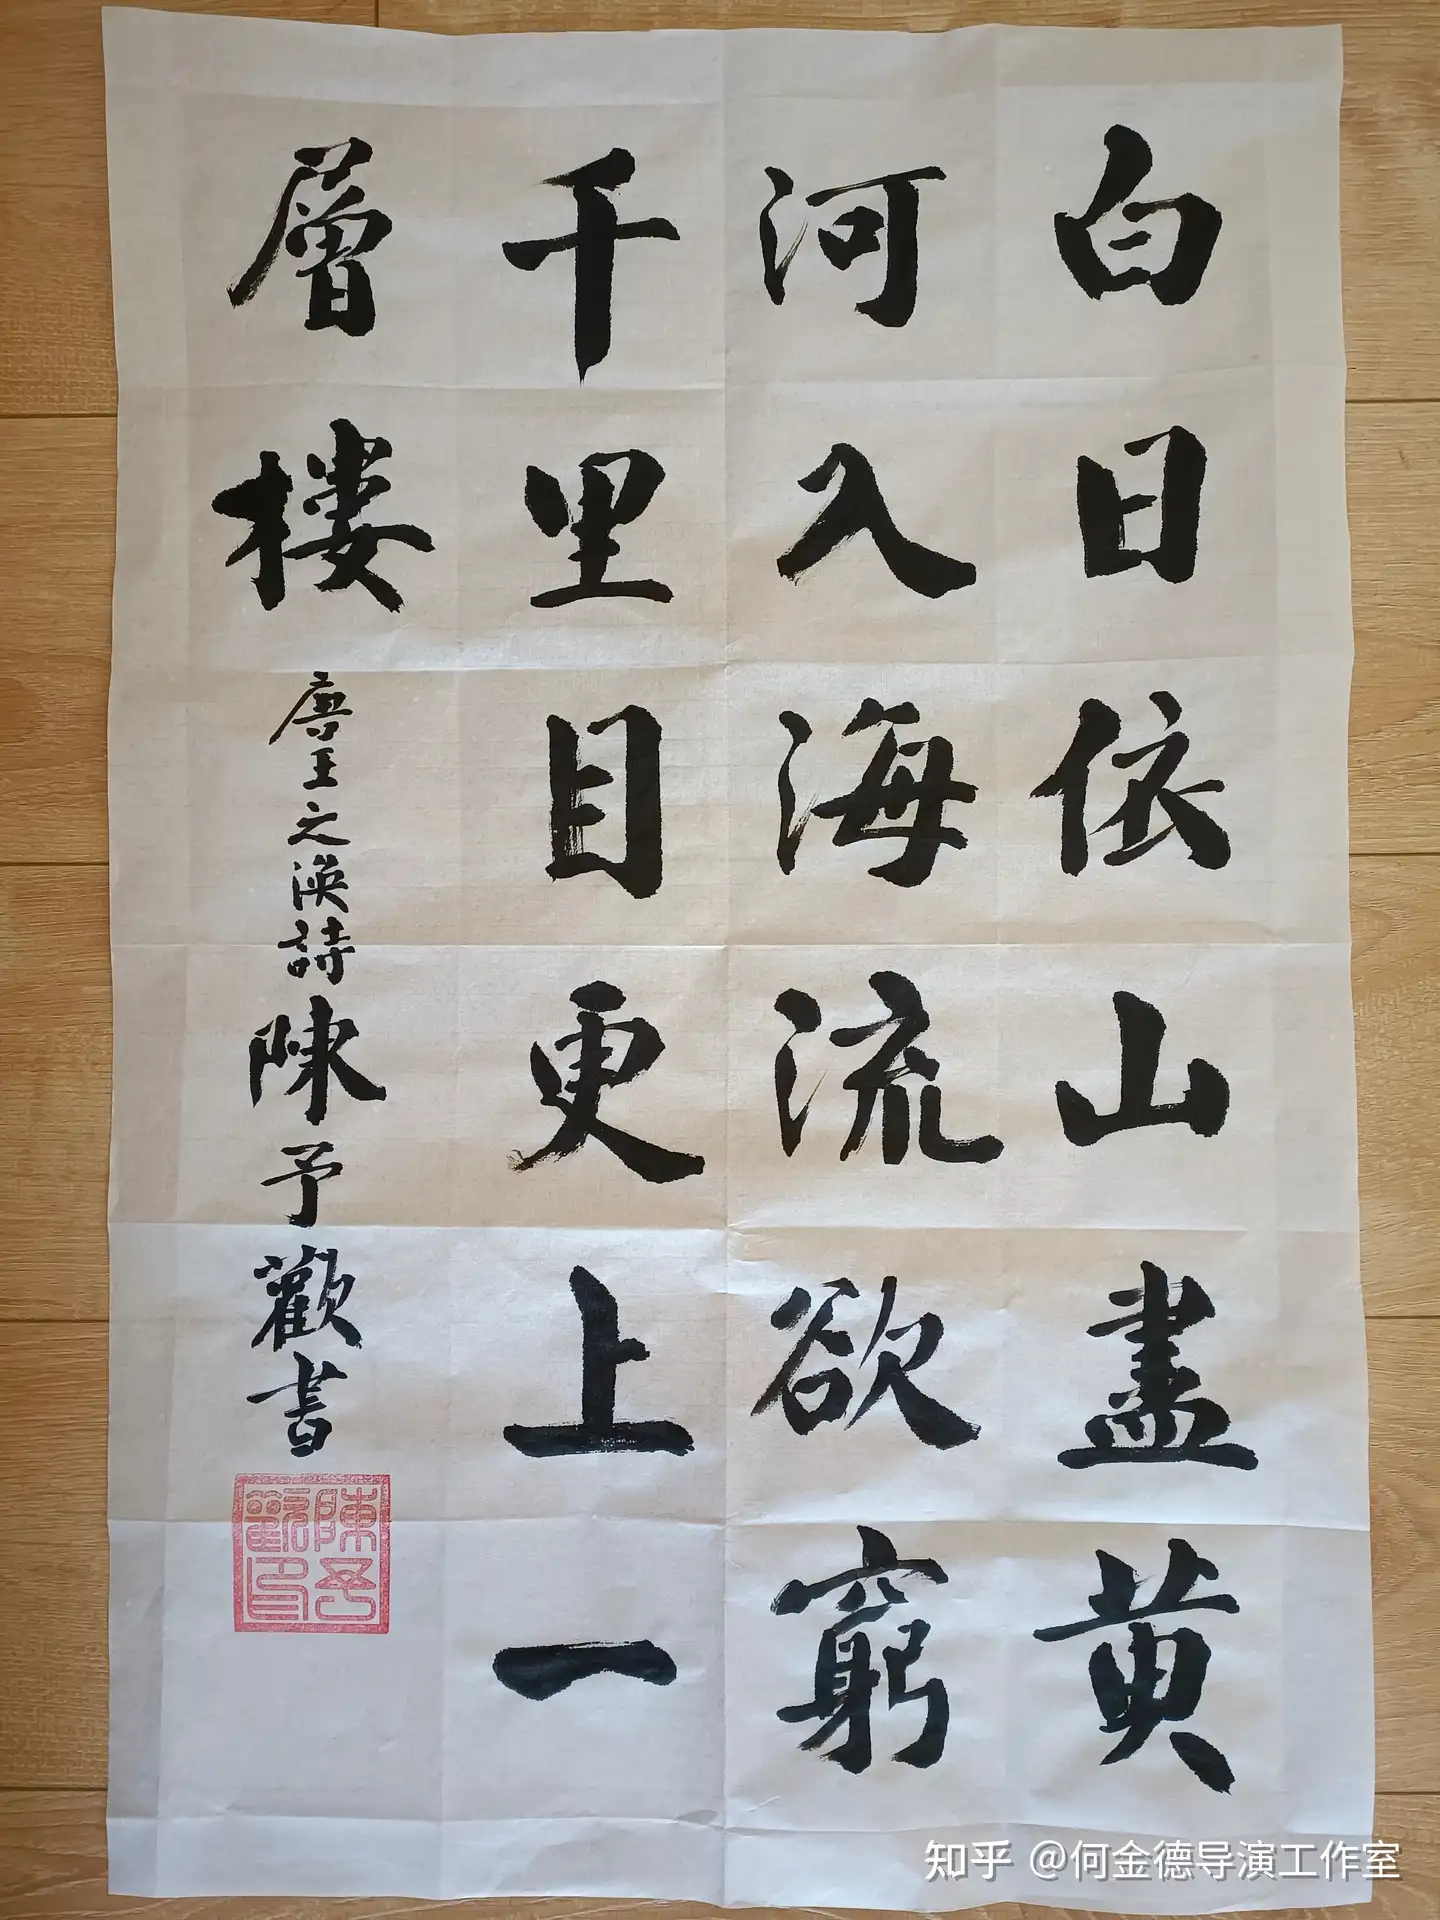 白日依山盡黄
河入海流欲窮
千里目更上一
層樓
唐王之渙詩陳予歡書
陳予歡印
知乎 @何金德导演工作室